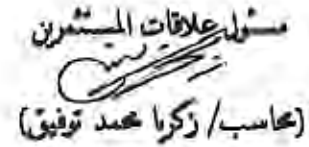 مسئول علاقات المستثمرين
(محاسب/ زكريا محمد توفيق)